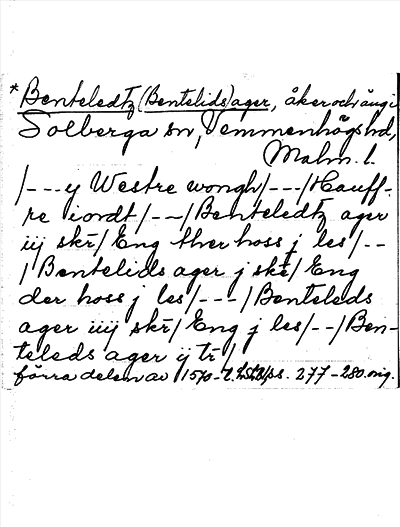 * Benteledtz (Bentelids)ager, åker och äng i
Solberga sn, Vemmenhögs hd,
Malm. l.
/---y Westre wongh/---/Hauff-
re iordt/--~/Benteledtz ager
iij skr/Eng ther hoss j les/--
/Bentelids ager j skr/Eng
der hoss j les/---/Benteleds
ager iiij skr/Eng j les/--/Ben-
teleds ager ij tr/
förra delen av 1570-t. ss. 277-280. orig.